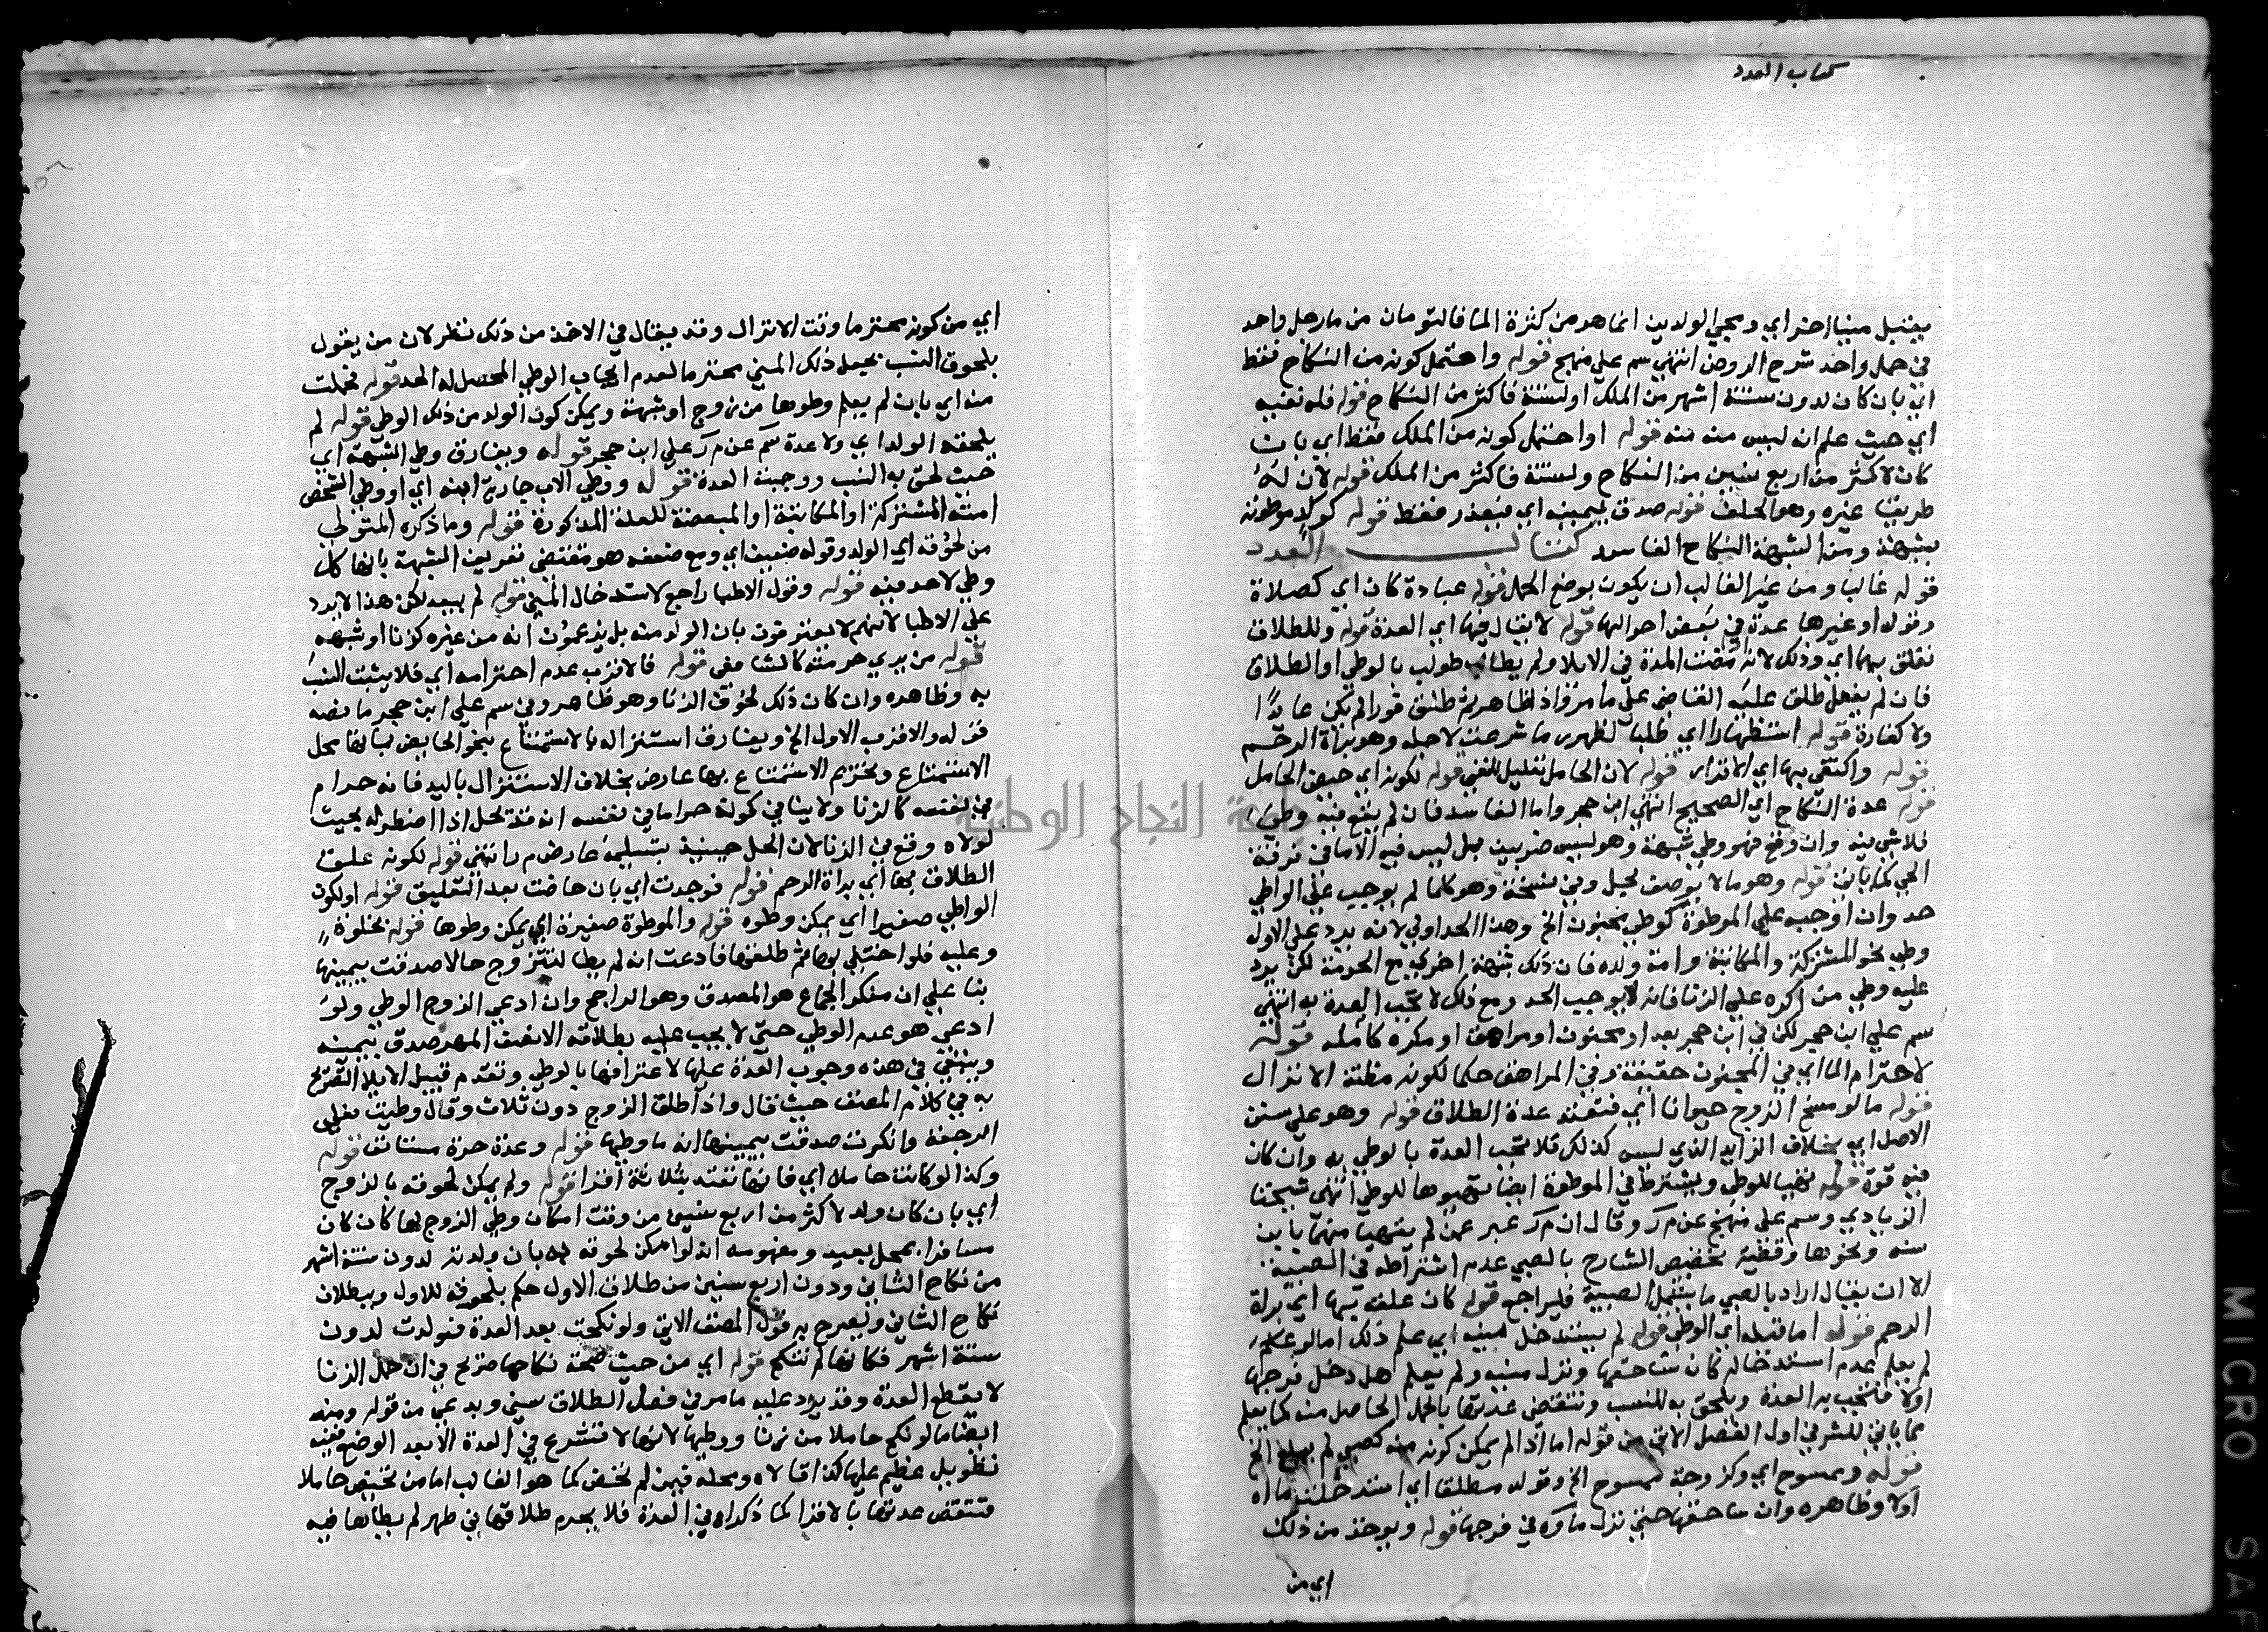 كتاب العدد
يقبل منيا اخر اي ومجي الولدين انما هو من كثرة الما فالتومان من ما رجل واحد
في حمل واحد شرح الروض انتهي سم علي منهج قوله واحتمل كونه من النكاح فقط
اي بان كان لدون ستة اشهر من الملك اولستة فاكثر من النكاح قوله فله نفيه
اي حيث علم انه ليس منه قوله او احتمل كونه من الملك فقط اي بان
كان لاكثر من اربع سنين من النكاح ولستة فاكثر من الملك قوله لان له
طريقا غيره وهو الحلف قوله صدق بيمينه اي فيعذر فقط قوله كولد موطوته
بشبهة ومن الشبهة النكاح الفاسد كتاب العدد
قوله غالبا ومن غير الغالب ان يكون بوضع الحمل قوله عبادة كان اي كصلاة
وقوله او غيرها عدة في بعض احوالها قوله لا يقال فيها اي العدة قوله وللطلاق
تعلق بهما اي وذلك لانه اذا مضت المدة في الايلا ولم يطا طولب بالوطي او الطلاق
فان لم يفعل طلق عليه القاضي علي ما مر واذا ظاهر ثم طلق فورا لم يكن عايدا
ولا كفارة قوله استظهارا اي طلبا لظهور ما شرعت لاجله وهو براة الرحم
قوله واكتفي بها اي الاقرار قوله لان الحامل تعليل للنفي قوله لكونه اي حيض الحامل
قوله عدة النكاح اي الصحيح انتهي ابن حجر واما الفاسد فان لم يقع فيه وطي
فلا شي فيه وان وقع فهو وطي شبهة وهو ليس ضربين بل ليس فيه الا ما في فرقة
الحي كما ياتي قوله وهو ما لا يوصف بحل وفي نسخة وهو كلما لم يوجب علي الواطي
حد وان اوجبه علي الموطوة كوطي مجنون الخ وهذا الحد اولي لانه يرد علي الاول
وطي نحو المشتركة والمكاتبة وامة ولده فان ذلك شبهة اخري مع الحرمة لكن يرد
عليه وطي من اكره علي الزنا فانه لا يوجب الحد ومع ذلك لا تجب العدة به انتهي
سم علي ابن حجر لكن في ابن حجر بعد او مجنون او مراهق او مكره كاملة قوله
لاحترام الما اي في المجنون حقيقة وفي المراهق حكما لكونه مظنة الانزال
قوله ما لو مسخ الزوج حيوانا اي فتعتد عدة الطلاق قوله وهو علي سنن
الاصل اي بخلاف الزايد الذي ليس كذلك فلا تجب العدة بالوطي به وان كان
فيه قوة قوله تهيا للوطي ويشترط في الموطوة ايضا تهيوها للوطي انتهي شيخنا
الزيادي وسم علي منهج عن م ر وقال ان م ر عبر عمن لم يتهيا منهما بابن
سنة ونحوها وقضية تخصيص الشارح بالصبي عدم اشتراطه في الصبية
الا ان يقال اراد بالصبي ما يشمل الصبية فليراجع قوله كان علقه بها اي براة
الرحم قوله اما قبله اي الوطي قوله لم يستدخل منيه اي علم ذلك اما لو علم
لم يعلم عدم استدخاله كان ساحقها ونزل منيه ولم يعلم هل دخل فرجها
اولا فتجب به العدة ويلحق به النسب وتنقضي عدتها بالحمل الحاصل منه كما يعلم
مما ياتي للش في اول الفصل الاتي من قوله اما اذا لم يمكن كونه منه كصبي لم يبلغ الخ
قوله وممسوح اي وكزوجة ممسوح الخ وقوله مطلقا اي استدخلت ماه
اولا وظاهره وان ساحقها حتي نزل ماوه في فرجها قوله ويوخذ من ذلك
اي من
اي من كونه محترما وقت الانزال وقد يقال في الاخذ من ذلك نظر لان من يقول
بلحوق النسب يجعل ذلك المني محترما لعدم ايجاب الوطي المحصل له الحد قوله فحملت
منه اي بان لم يعلم وطوها من زوج او شبهة ويمكن كون الولد من ذلك الوطي قوله لم
يلحقه الولد اي ولا عدة سم عن م ر علي ابن حجر قوله ويفارق وطي الشبهة اي
حيث لحق به النسب ووجبت العدة قوله ووطي الاب جارية ابنه اي او وطي الشخص
امته المشتركة او المكاتبة او المبعضة للعلة المذكورة قوله وما ذكره المتولي
من لحوقه اي الولد وقوله ضعيف اي ومع ضعفه هو مقتضي تعريف الشبهة بانها كل
وطي لا حد فيه قوله وقول الاطبا راجع لاستدخال المني قوله لم يبعد لكن هذا لا يرد
علي الاطبا لانهم لا يعترفون بان الولد منه بل يزعمون انه من غيره كزنا او شبهة
قوله من يري حرمته كالشافعي قوله فالاقرب عدم احترامه اي فلا يثبت النسب
به وظاهره وان كان ذلك لخوف الزنا وهو ظاهر وفي سم علي ابن حجر ما نصه
قوله والاقرب الاول الخ ويفارق استنزاله بالاستمتاع بنحو الحايض بانها محل
الاستمتاع وتحريم الاستمتاع بها عارض بخلاف الاستنزال باليد فانه حرام
في نفسه كالزنا ولا ينافي كونه حراما في نفسه انه قد يحل اذا اضطر له بحيث
لولاه وقع في الزنا لان الحل حينيذ بتسليمه عارض م ر انتهي قوله لكونه علق
الطلاق بها اي براة الرحم قوله فوجدت اي بان حاضت بعد التعليق قوله او لكون
الواطي صغيرا اي يمكن وطوه قوله والموطوة صغيرة اي يمكن وطوها قوله بخلوة
وعليه فلو اختلي بها ثم طلقها فادعت انه لم يطا لتتزوج حالا صدقت بيمينها
بنا علي ان منكر الجماع هو المصدق وهو الراجح وان ادعي الزوج الوطي ولو
ادعي هو عدم الوطي حتي لا يجب عليه بطلاقه الا نصف المهر صدق بيمينه
وينبغي في هذه وجوب العدة عليها لاعترافها بالوطي وتقدم قبيل الايلا التصريح
به في كلام المصنف حيث قال واذا طلق الزوج دون ثلاث وقال وطيت فعلي
الرجعة وانكرت صدقت بيمينها انه ما وطيها قوله وعدة حرة مستانف قوله
وكذا لو كانت حاملا اي فانها تعتد بثلاثة اقرا قوله ولم يمكن لحوقه بالزوج
اي بان كان ولد لاكثر من اربع سنين من وقت امكان وطي الزوج لها كان كان
مسافرا بمحل بعيد ومفهومه انه لو امكن لحوقه به بان ولدته لدون ستة اشهر
من نكاح الثاني ودون اربع سنين من طلاق الاول حكم بلحوقه للاول وببطلان
نكاح الثاني ويصرح به قول المصنف الاتي ولو نكحت بعد العدة فولدت لدون
ستة اشهر فكانها لم تنكح قوله اي من حيث صحة نكاحها صريح في ان حمل الزنا
لا يقطع العدة وقد يرد عليه ما مر في فصل الطلاق سني وبدعي من قوله ومنه
ايضا ما لو نكح حاملا من زنا ووطيها لانها لا تشرع في العدة الا بعد الوضع ففيه
تطويل عظيم عليها كذا قالاه ومحله فيمن لم تحض كما هو الغالب اما من تحيض حاملا
فتنقضي عدتها بالاقرا كما ذكراه في العدة فلا يحرم طلاقها في طهر لم يطاها فيه